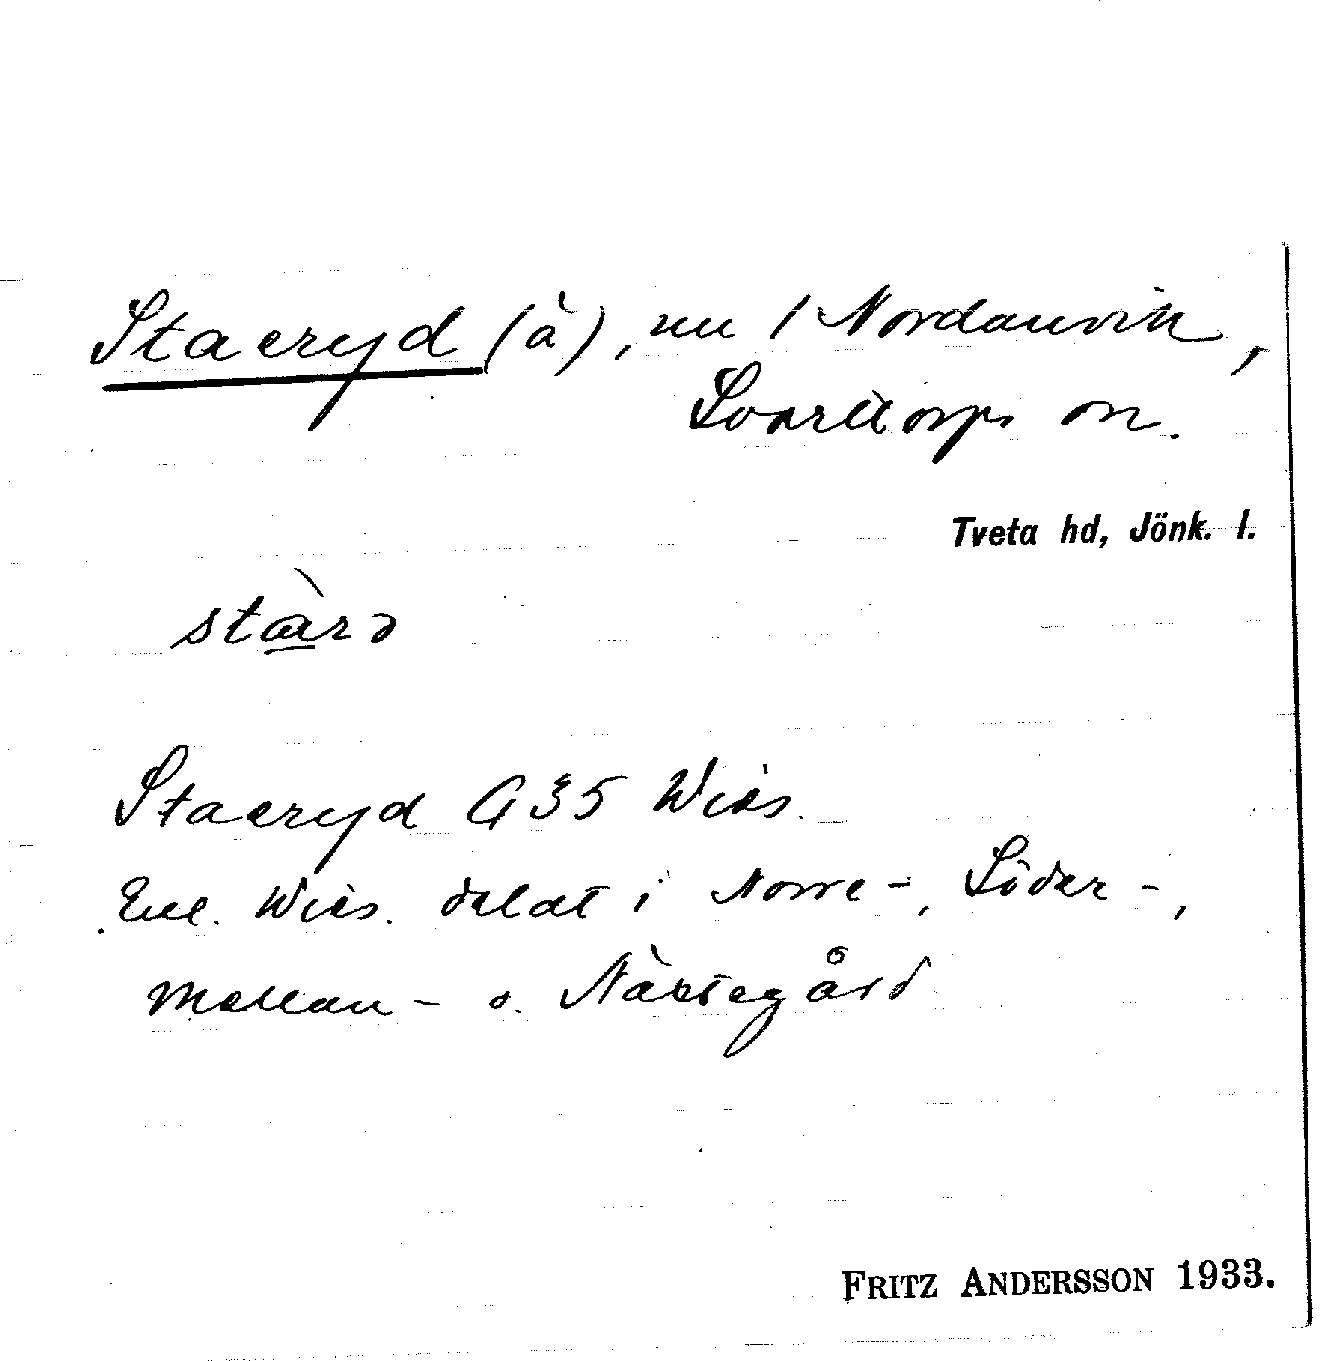 Staeryd (à), nu i Nordanvik,
Svarttorps sn.
Tveta hd, Jönk. l.
Staeryd G35 Wies.
Enl. Wies. delat i Norre-, Söder-,
Mellan- o. Nästegård
FRITZ ANDERSSON 1933.